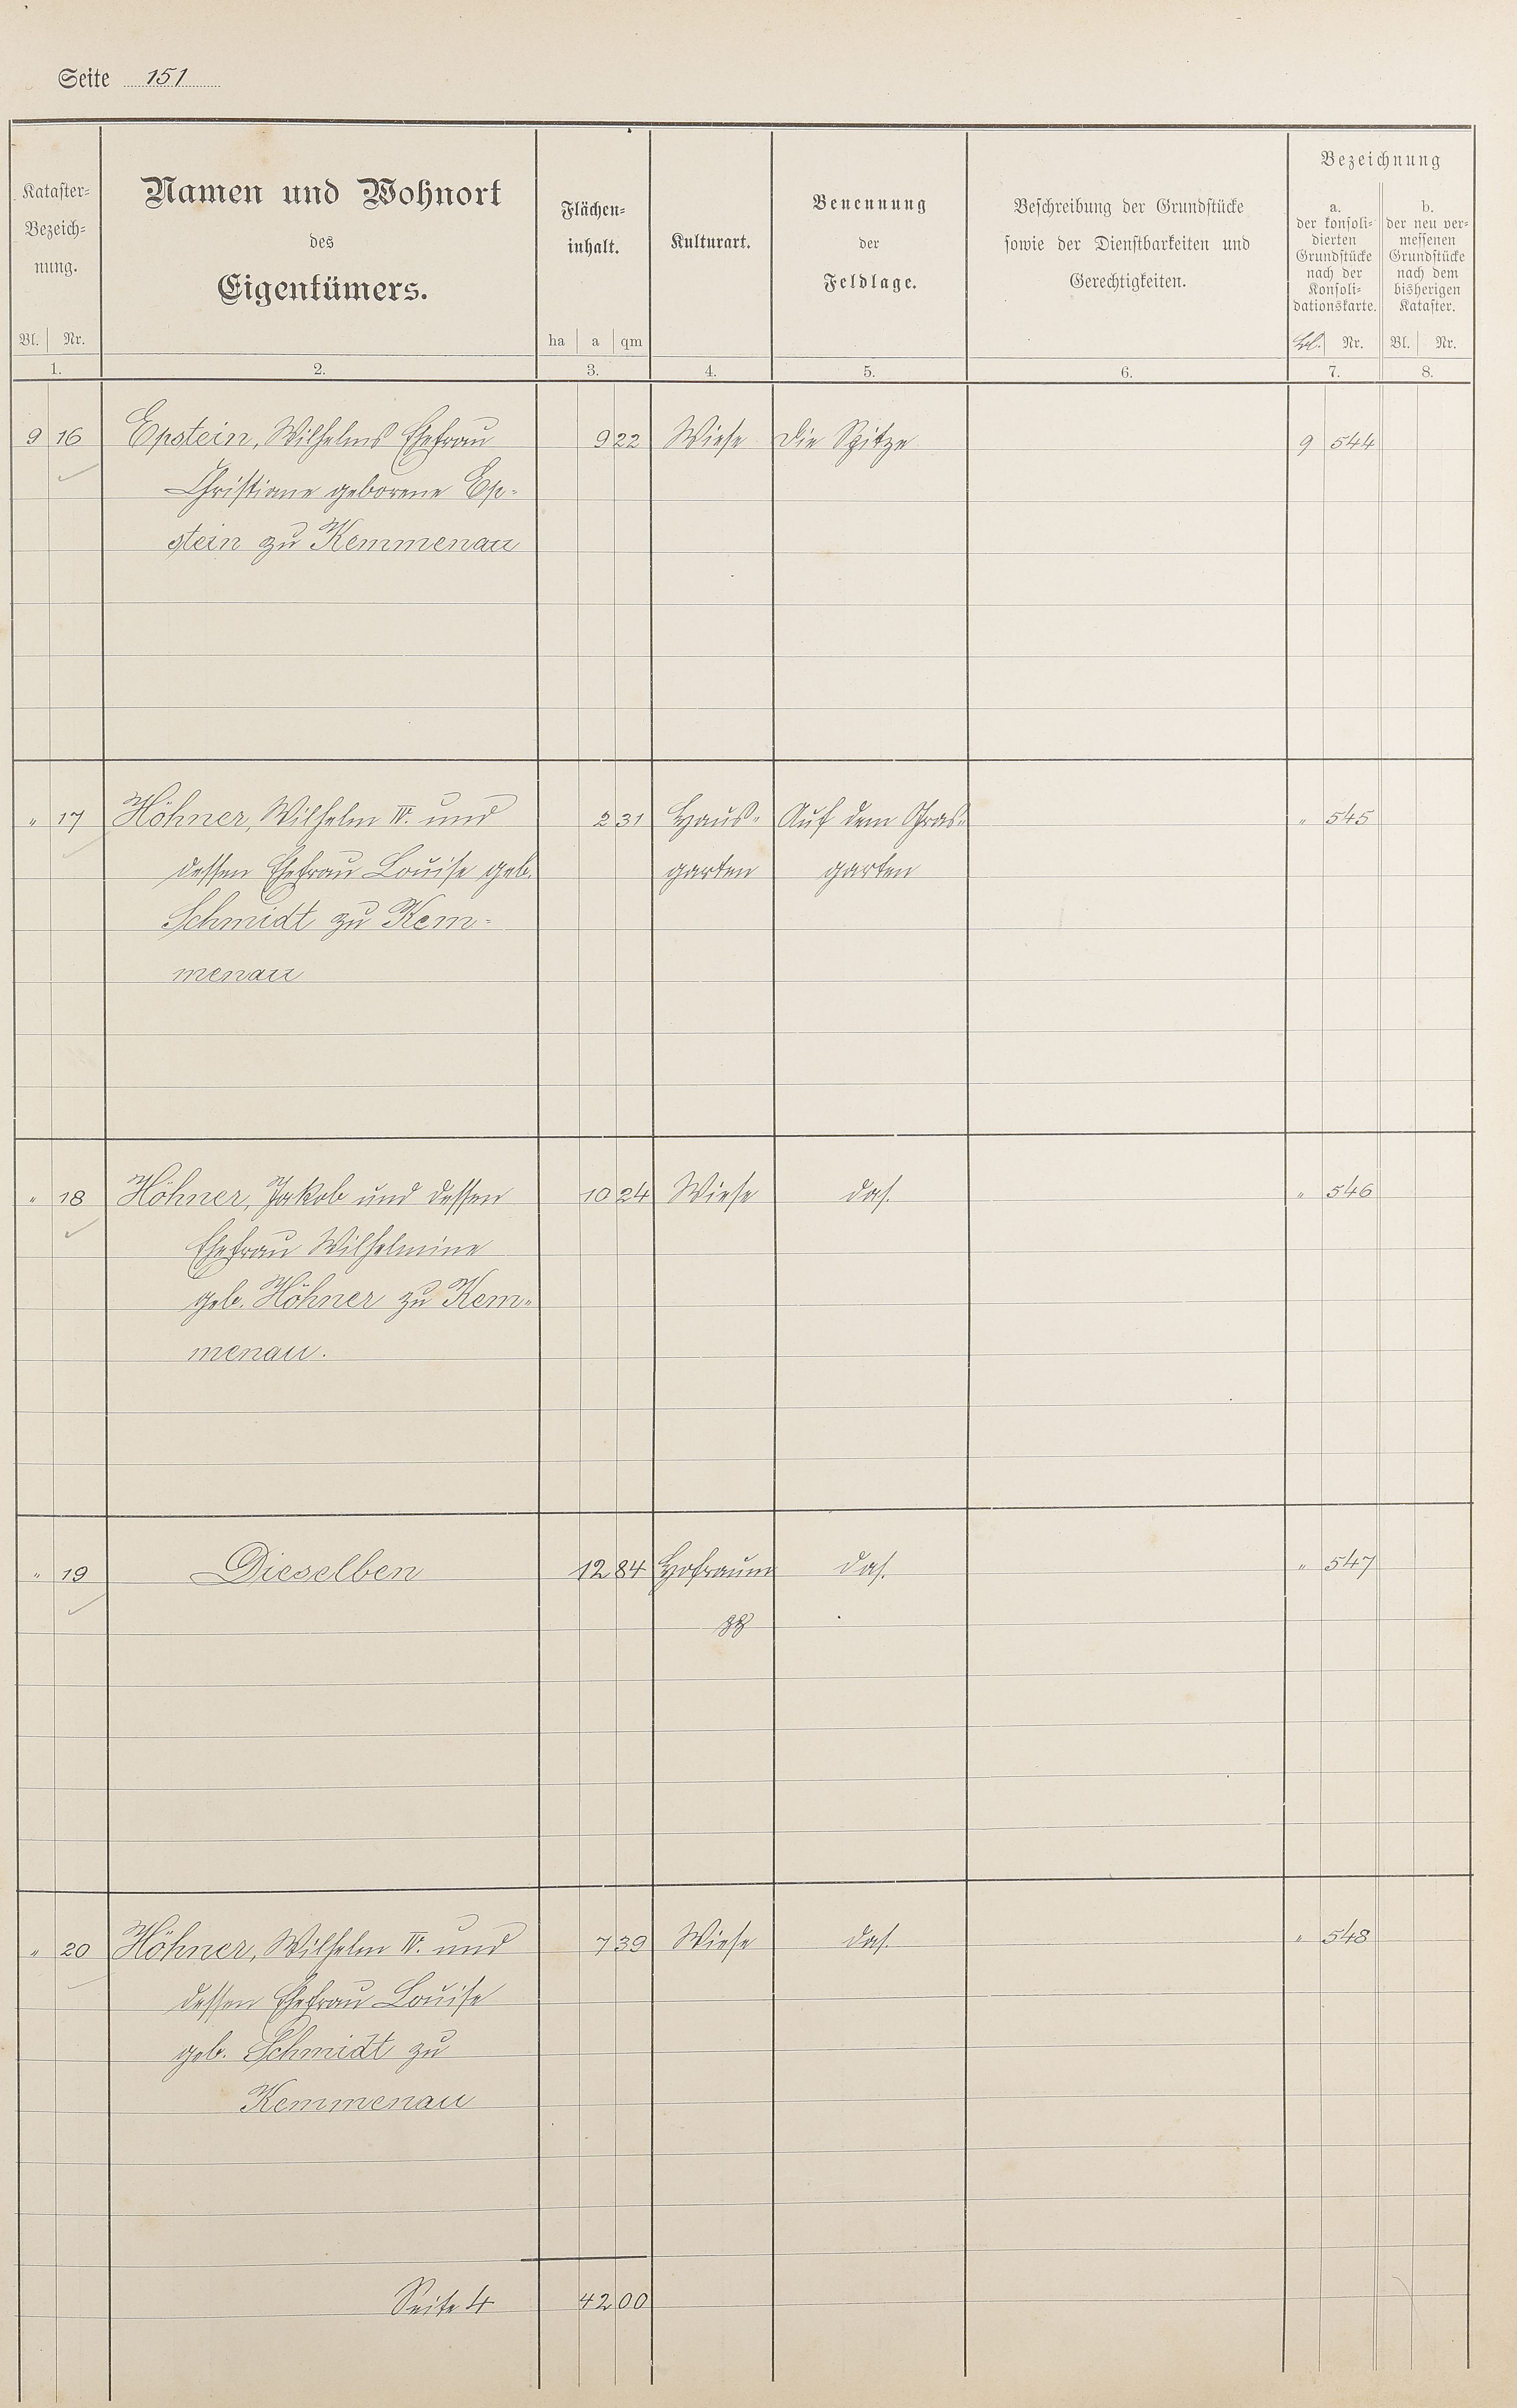 Seite 151
Kataster-Bezeich-nung.
Bl. Nr.
1.
Namen und Wohnort
des
Eigentümers.
2.
Flächen-inhalt.
ha a qm
3.
Kulturart.
4.
Benennung
der
Feldlage.
5.
Beschreibung der Grundstücke
sowie der Dienstbarkeiten und
Gerechtigkeiten.
6.
Bezeichnung
a.
der konsoli-
dierten
Grundstücke
nach der
Konsoli-
dationskarte.
Bl. Nr.
7.
b.
der neu ver-
messenen
Grundstücke
nach dem
bisherigen
Kataster.
Bl. Nr.
8.
9 16 Epstein, Wilhelms Ehefrau 9 22 Wiese Die Spitze 9 544
Christiane geborene Ep-
stein zu Kemmenau
" 17 Höhner, Wilhelm IV. und 2 31 Haus- Auf dem Gras- " 545
dessen Ehefrau Louise geb. garten garten
Schmidt zu Kem-
menau
" 18 Höhner, Jakob und dessen 10 24 Wiese das. " 546
Ehefrau Wilhelmine
geb. Höhner zu Kem-
menau.
" 19 Dieselben 12 84 Hofraum das. " 547
" 20 Höhner, Wilhelm IV. und 7 39 Wiese das. " 548
dessen Ehefrau Louise
geb. Schmidt zu
Kemmenau
Seite 4 42 00